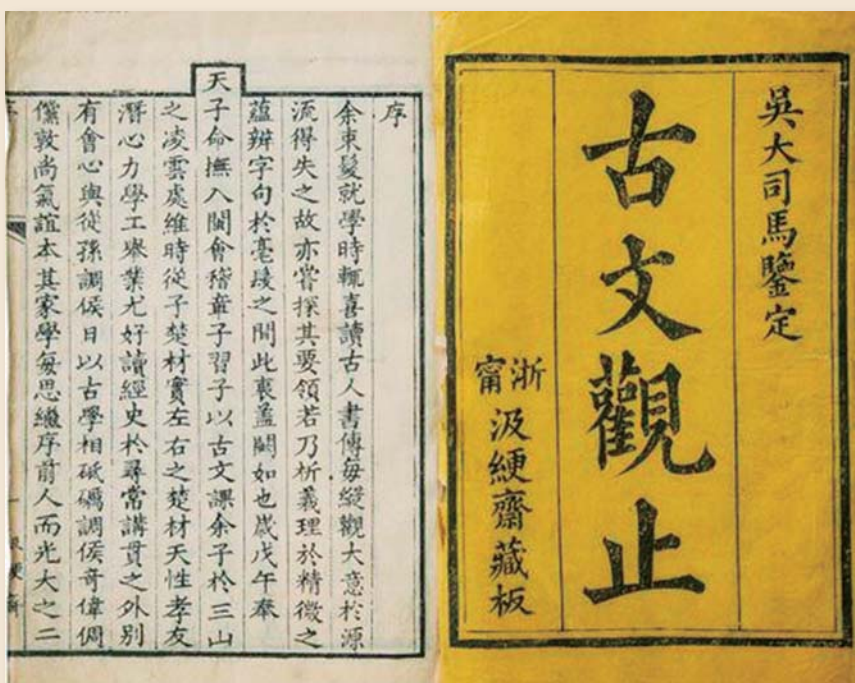 吳大司馬鑒定
古文觀止
浙甯
汲綆齋藏板
序
余束髮就學時輒喜讀古人書傳每縱觀大意於源
流得失之故亦嘗探其要領若乃析義理於精微之
蘊辨字句於毫髮之間此衷蓋闕如也歲戊午奉
天子命撫入閩會稽章子習子以古文課余子於三山
之凌雲處維時從子楚材實左右之楚材天性孝友
潛心力學工舉業尤好讀經史於尋常講貫之外別
有會心與從孫調侯日以古學相砥礪調侯奇偉倜
儻敦尚氣誼本其家學每思繼序前人而光大之二